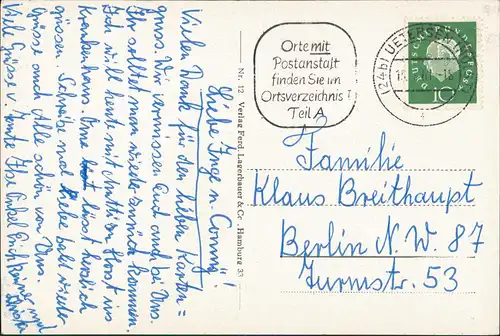 Liebe Inge u. Conny!
Vielen Dank für den lieben Karten=
gruss. Wir vermissen Euch auch bei Uns.
Ihr solltet man wieder zurück kommen.
Ich will heute mit Mutti Horst ins
Krankenhaus. Oma lässt herzlich
grüssen. Schreibe mal bald wieder
Grüsse auch Alle schön von Uns.
Viele Grüsse v. Tante Ilse Onkel
Nr. 12 Verlag Ferd. Lagerbauer & Co., Hamburg 33
Orte mit
Postanstalt
finden Sie im
Ortsverzeichnis
Teil A
(24b) UETERSEN
DEUTSCHE BUNDESPOST
10
Familie
Klaus Breithaupt
Berlin N.W. 87
Turmstr. 53